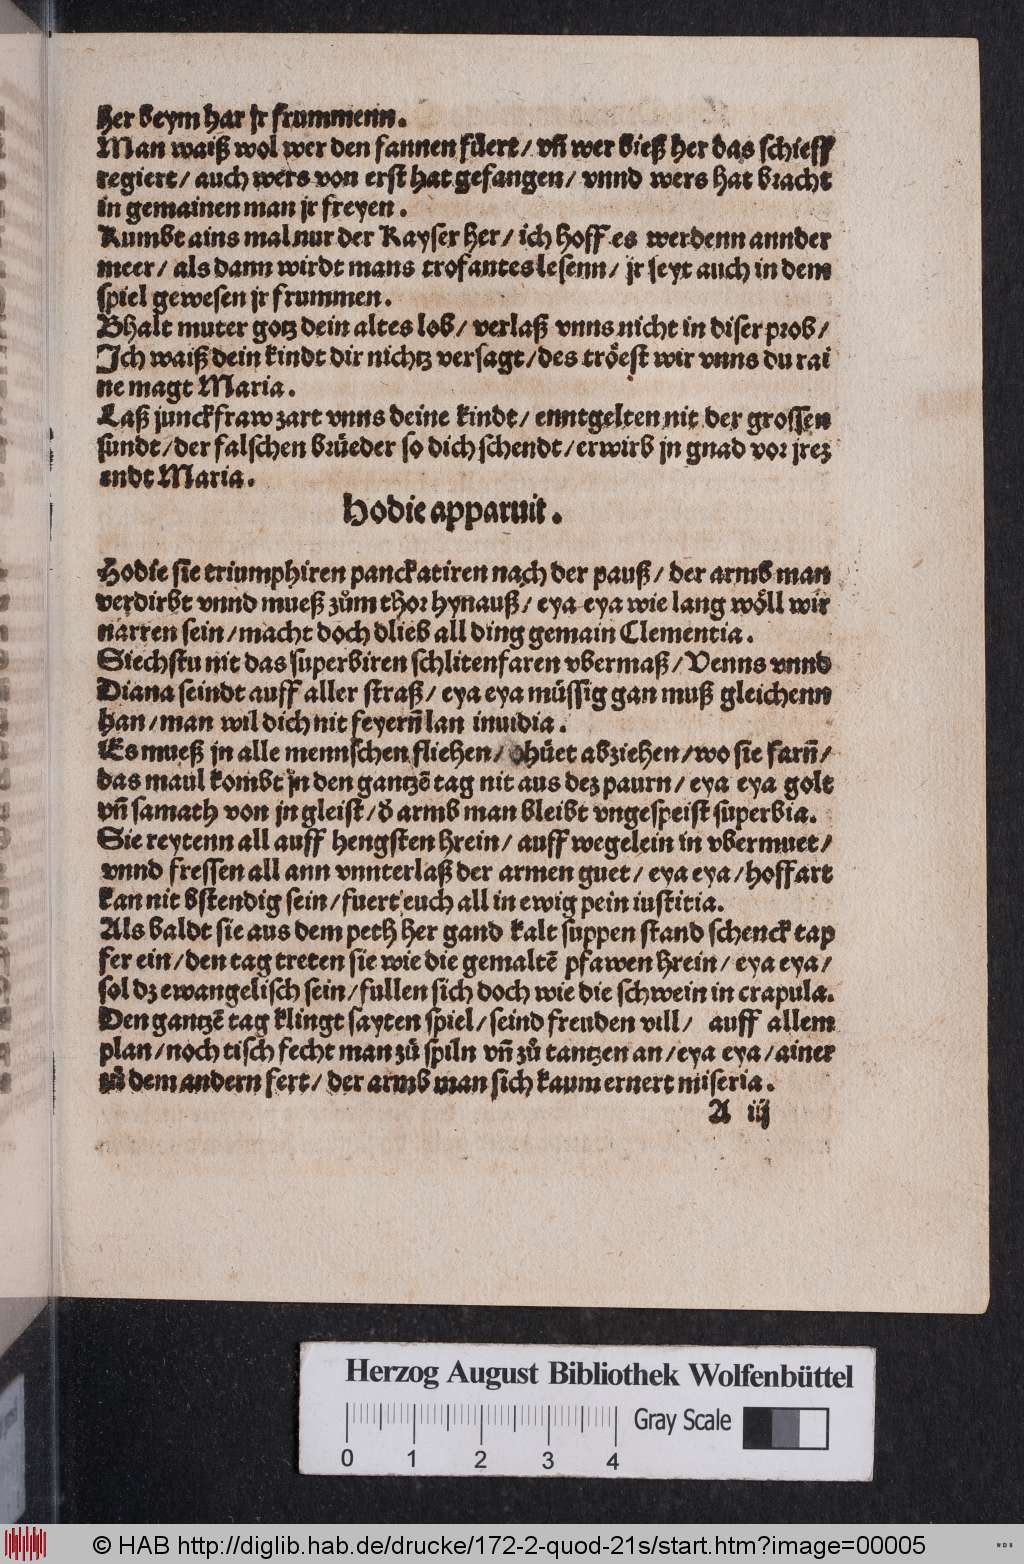 her beym har jr frummenn.
Man waiß wol wer den fannen fůert/ vñ wer bieß her das schieff
regiert/ auch wers von erst hat gefangen/ vnnd wers hat bracht
in gemainen man jr freyen.
Kumbt ains mal nur der Kayser her/ ich hoff es werdenn annder
meer/ als dann wirdt mans trofantes lesenn/ jr seyt auch in dem
spiel gewesen jr frummen.
Bhalt muter gotz dein altes lob/ verlaß vnns nicht in diser prob/
Ich waiß dein kindt dir nichtz versagt/ des tröest wir vnns du rai
ne magt Maria.
Laß junckfraw zart vnns deine kindt/ enntgelten nit der grossen
sundt/ der falschen brüeder so dich schendt/ erwirb jn gnad vor jrez
endt Maria.
Hodie apparuit.
Hodie sie triumphiren panckatiren nach der pauß/ der armb man
verdirbt vnnd mueß zům thor hynauß/ eya eya wie lang wöll wir
narren sein/ macht doch dlieb all ding gemain Clementia.
Siechstu nit das superbiren schlitenfaren vbermaß/ Venns vnnd
Diana seindt auff aller straß/ eya eya müssig gan muß gleichenn
han/ man wil dich nit feyern̄ lan inuidia.
Es mueß jn alle mennschen fliehen/ dhüet abziehen/ wo sie farn̄/
das maul kombt jn den gantzē tag nit aus dez paurn/ eya eya golt
vñ samath von jn gleist/ d̄ armb man bleibt vngespeist superbia.
Sie reytenn all auff hengsten hrein/ auff wegelein in vbermuet/
vnnd fressen all ann vnnterlaß der armen guet/ eya eya/ hoffart
kan nit bstendig sein/ fuert euch all in ewig pein iustitia.
Als baldt sie aus dem peth her gand kalt suppen stand schenck tap
fer ein/ den tag treten sie wie die gemaltē pfawen hrein/ eya eya/
sol dz ewangelisch sein/ fullen sich doch wie die schwein in crapula.
Den gantzē tag klingt sayten spiel/ seind freuden vill/ auff allem
plan/ noch tisch fecht man zů spiln vñ zů tantzen an/ eya eya/ ainer
zů dem andern fert/ der armb man sich kaum ernert miseria.
A iij
Herzog August Bibliothek Wolfenbüttel
Gray Scale
0 1 2 3 4
© HAB http://diglib.hab.de/drucke/172-2-quod-21s/start.htm?image=00005